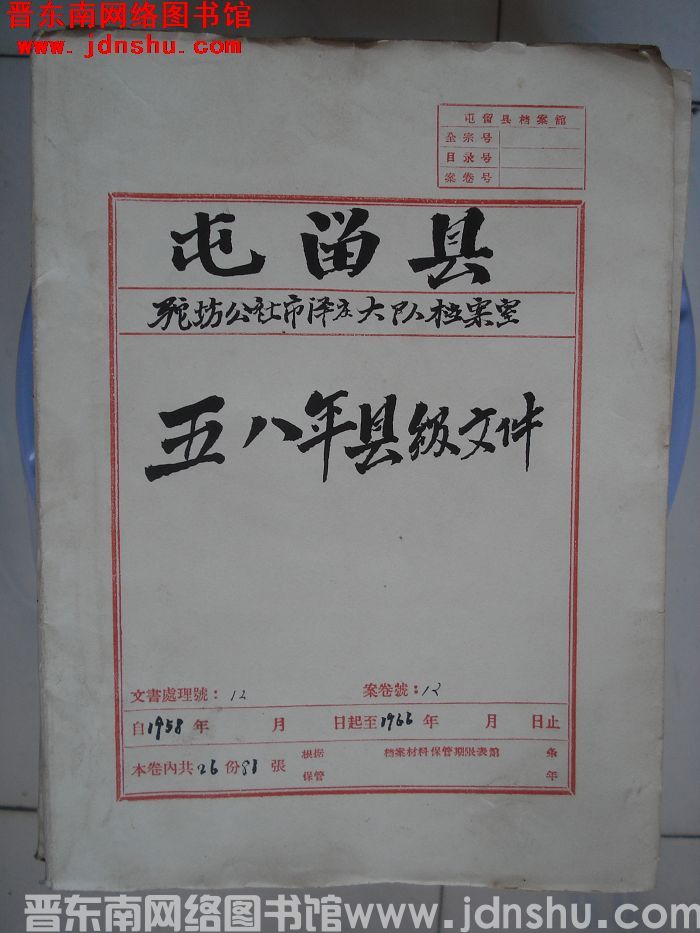 晋东南网络图书馆
www.jdnshu.com
屯留县档案館
全宗号
目录号
案卷号
屯留县
驼坊公社市泽庄大队档案室
五八年县级文件
文書處理號：12 案卷號：12
自1958年 月 日起至1966年 月 日止
本卷內共26份81張 根据 档案材料保管期限表館 条
保管 年
晋东南网络图书馆www.jdnshu.com